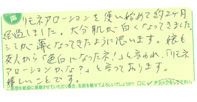 リモネアローションを使い始めて約2ヶ月
経過しました。大分肌が白くなってきました
シミが薄くなってきたように思います。娘も
友人から「色白になったネ!」と言われ、「リモネ
アローションかな?」と言っております。
嬉しいことです。